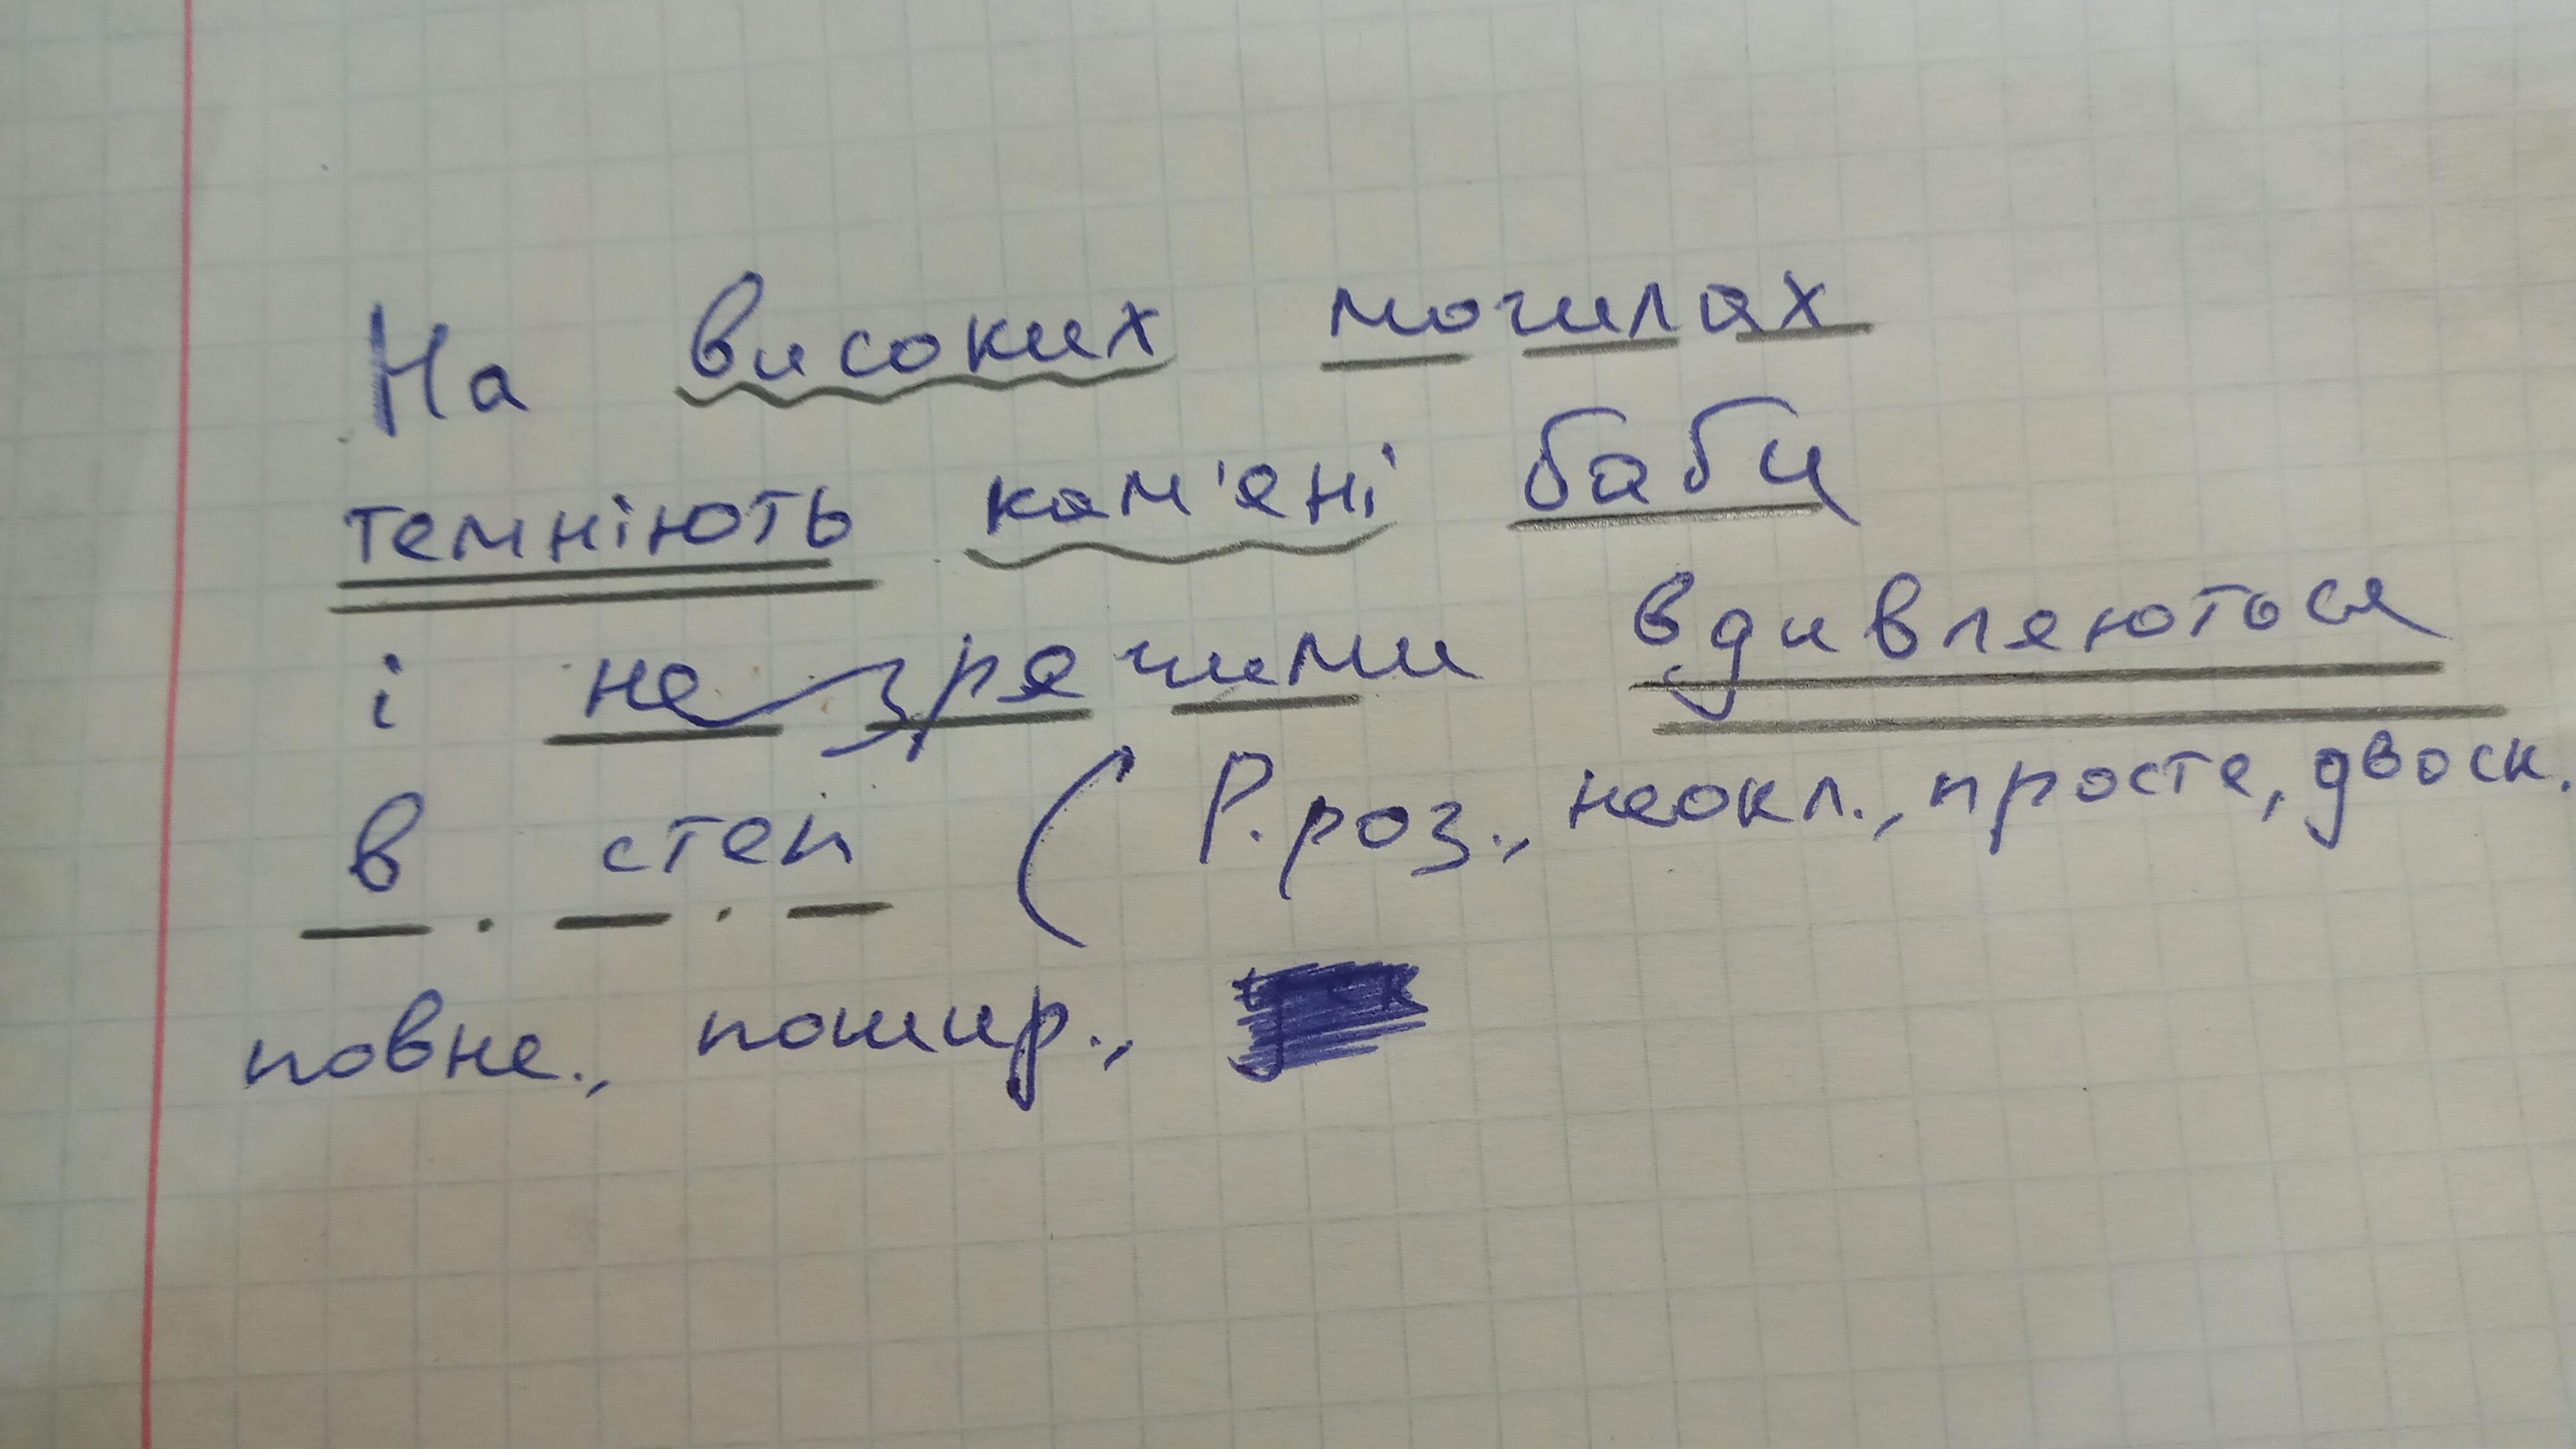 На високих могилах
темніють кам'яні баби
і незрячими вдивляються
в степ ( Р.роз., неокл., просте, двоск.
повне., пошир.,